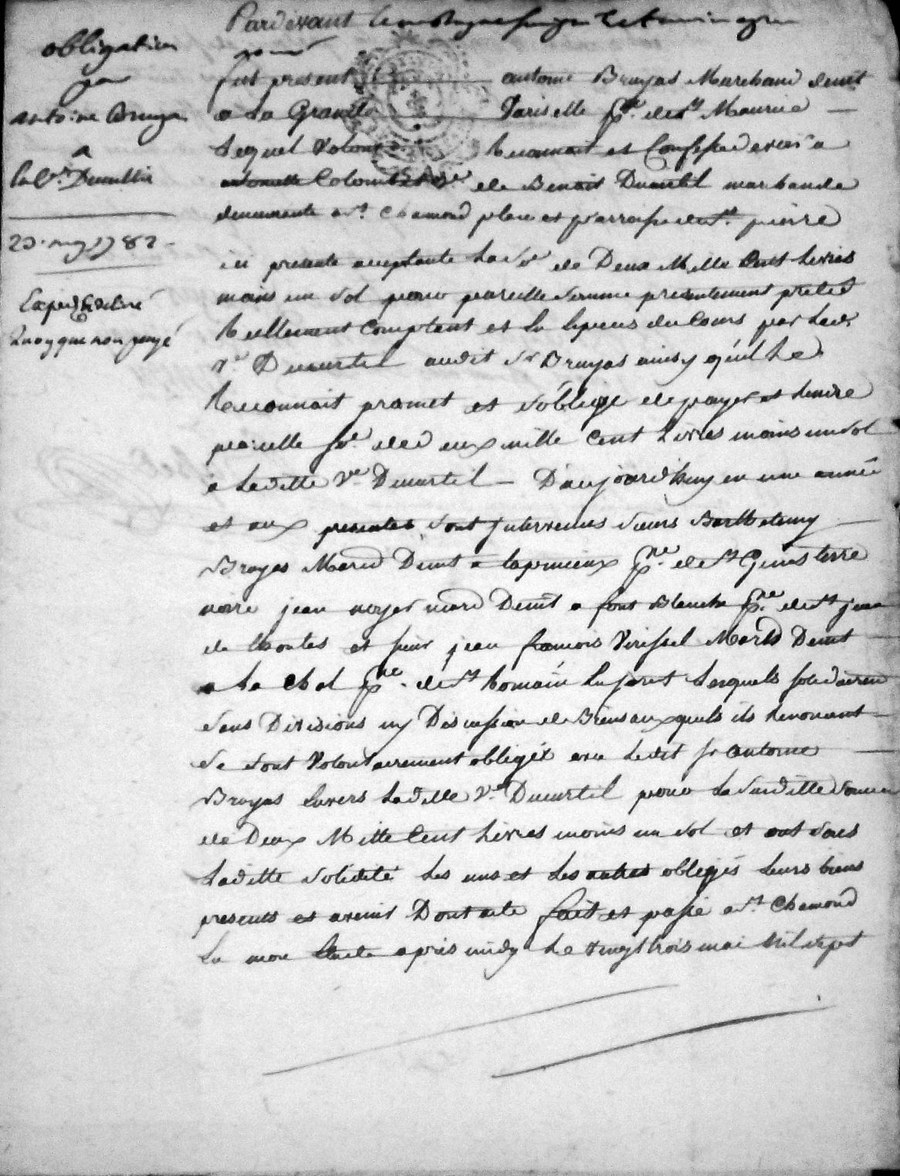 obligation
par
antoine Bruyas
a
la Ve. Dumurtil
23. may 1782
Expédié en délivré
Quoyque non payé
Pardevant le
fut present antoine Bruyas Marchand demt.
a La Grande Variselle psse. de st. Maurice
Lequel Volont. Reconnait et Confesse devoir a
Colombet Ve. de Benoit Dumurtil marchande
demeurante a st. Chamond place et parroisse de st. pierre
icy presente acceptante La se. de Deux Mille Cent Livres
moins un sol pour pareille somme presentement pretée
Reellement Comptant et En Especes du Cours par Lade.
Ve. Dumurtil audit sr. Bruyas ainsy qu'il Le
Reconnait promet et s'oblige de payer et Rendre
pareille se. de deux mille Cent Livres moins un sol
a Laditte Ve. Dumurtil D'aujourd'huy en une année
et aux presentes sont intervenus sieurs Barthelemy
Bruyas Mard. Demt. a psse. de st. Genis terre
noire jean noyer mard Demt. a font Blanche psse. de st. jean
de Thoulas et sieur jean francois Virissel Mard. Demt.
a La Chal psse. de st. Romain Lesquels solidairement
sans Divisions ny Discussion de Biens auxquels ils Renoncent
se sont Volontairement obligés avec Ledit sr. antoine
Bruyas Envers Laditte Ve. Dumurtil pour La susditte somme
de Deux Mille Cent Livres moins un sol et ont sous
Laditte solidité Les uns et Les autres obligés Leurs biens
presents et avenir Dont acte fait et passé a st. Chamond
En mon Etude après midy Le vingttrois mai Mil sept